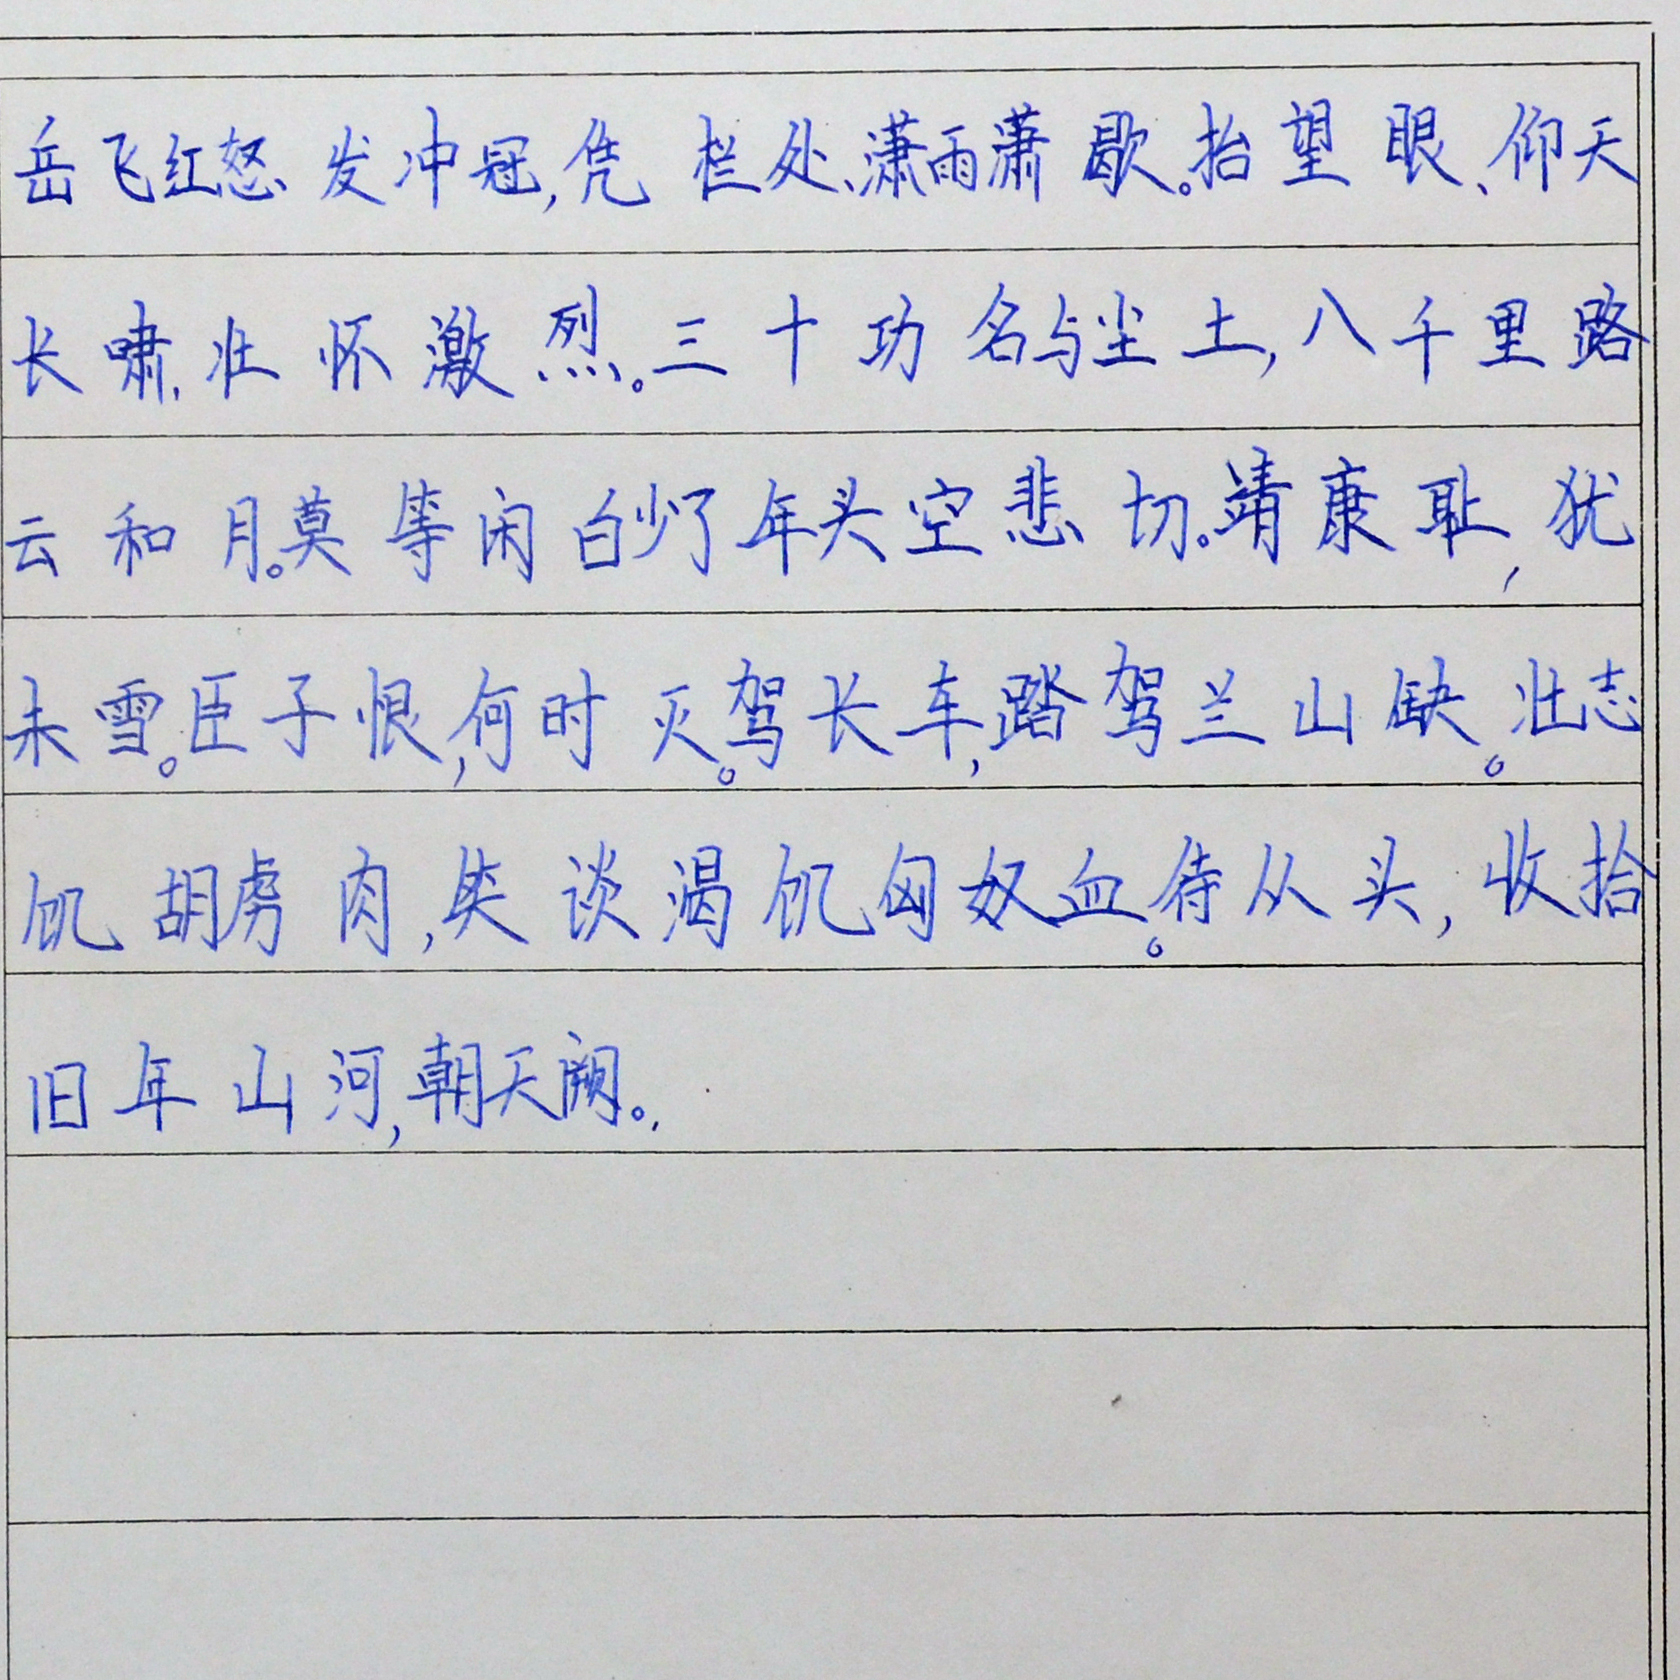 岳飞红怒发冲冠,凭栏处、潇雨潇歇。抬望眼、仰天
长啸、壮怀激烈。三十功名与尘土,八千里路
云和月。莫等闲白少了年头空悲切。靖康耻,犹
未雪。臣子恨,何时灭。驾长车,踏驾兰山缺。壮志
饥胡虏肉,笑谈渴饥匈奴血。待从头,收拾
旧年山河,朝天阙。